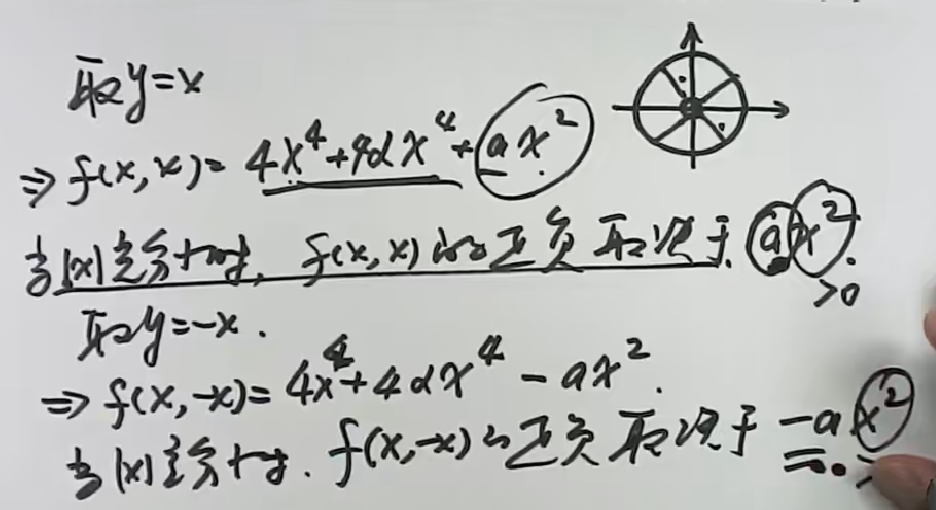 取y=x
⇒ f(x,x)= 4x⁴+4αx⁴+ax²
当|x|充分小时, f(x,x)的正负取决于ax².
>0
取y=-x.
⇒ f(x,-x)= 4x⁴+4αx⁴-ax².
当|x|充分小时. f(x,-x)的正负取决于-ax²